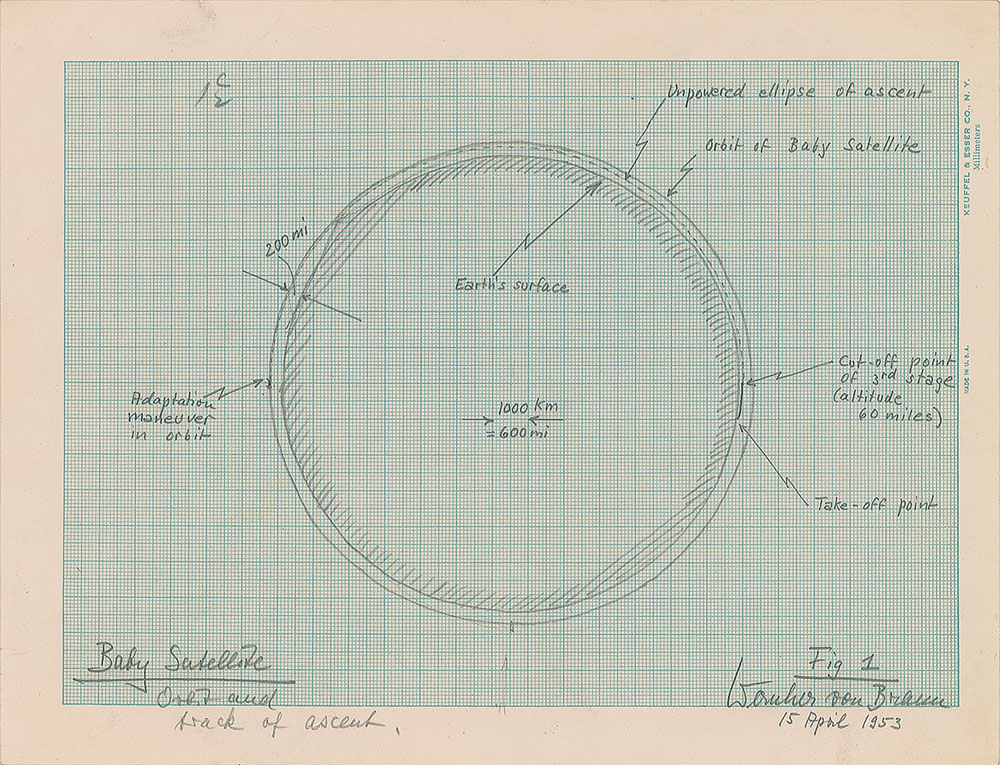 Unpowered ellipse of ascent
Orbit of Baby Satellite
KEUFFEL & ESSER CO., N. Y.
Millimeters
200 mi
Earth's surface
Cut-off point
of 3rd stage
(altitude
60 miles)
MADE IN U.S.A.
Adaptation
maneuver
in orbit
1000 km
= 600 mi
Take-off point
Baby Satellite
Orbit and
track of ascent.
Fig 1
Wernher von Braun
15 April 1953